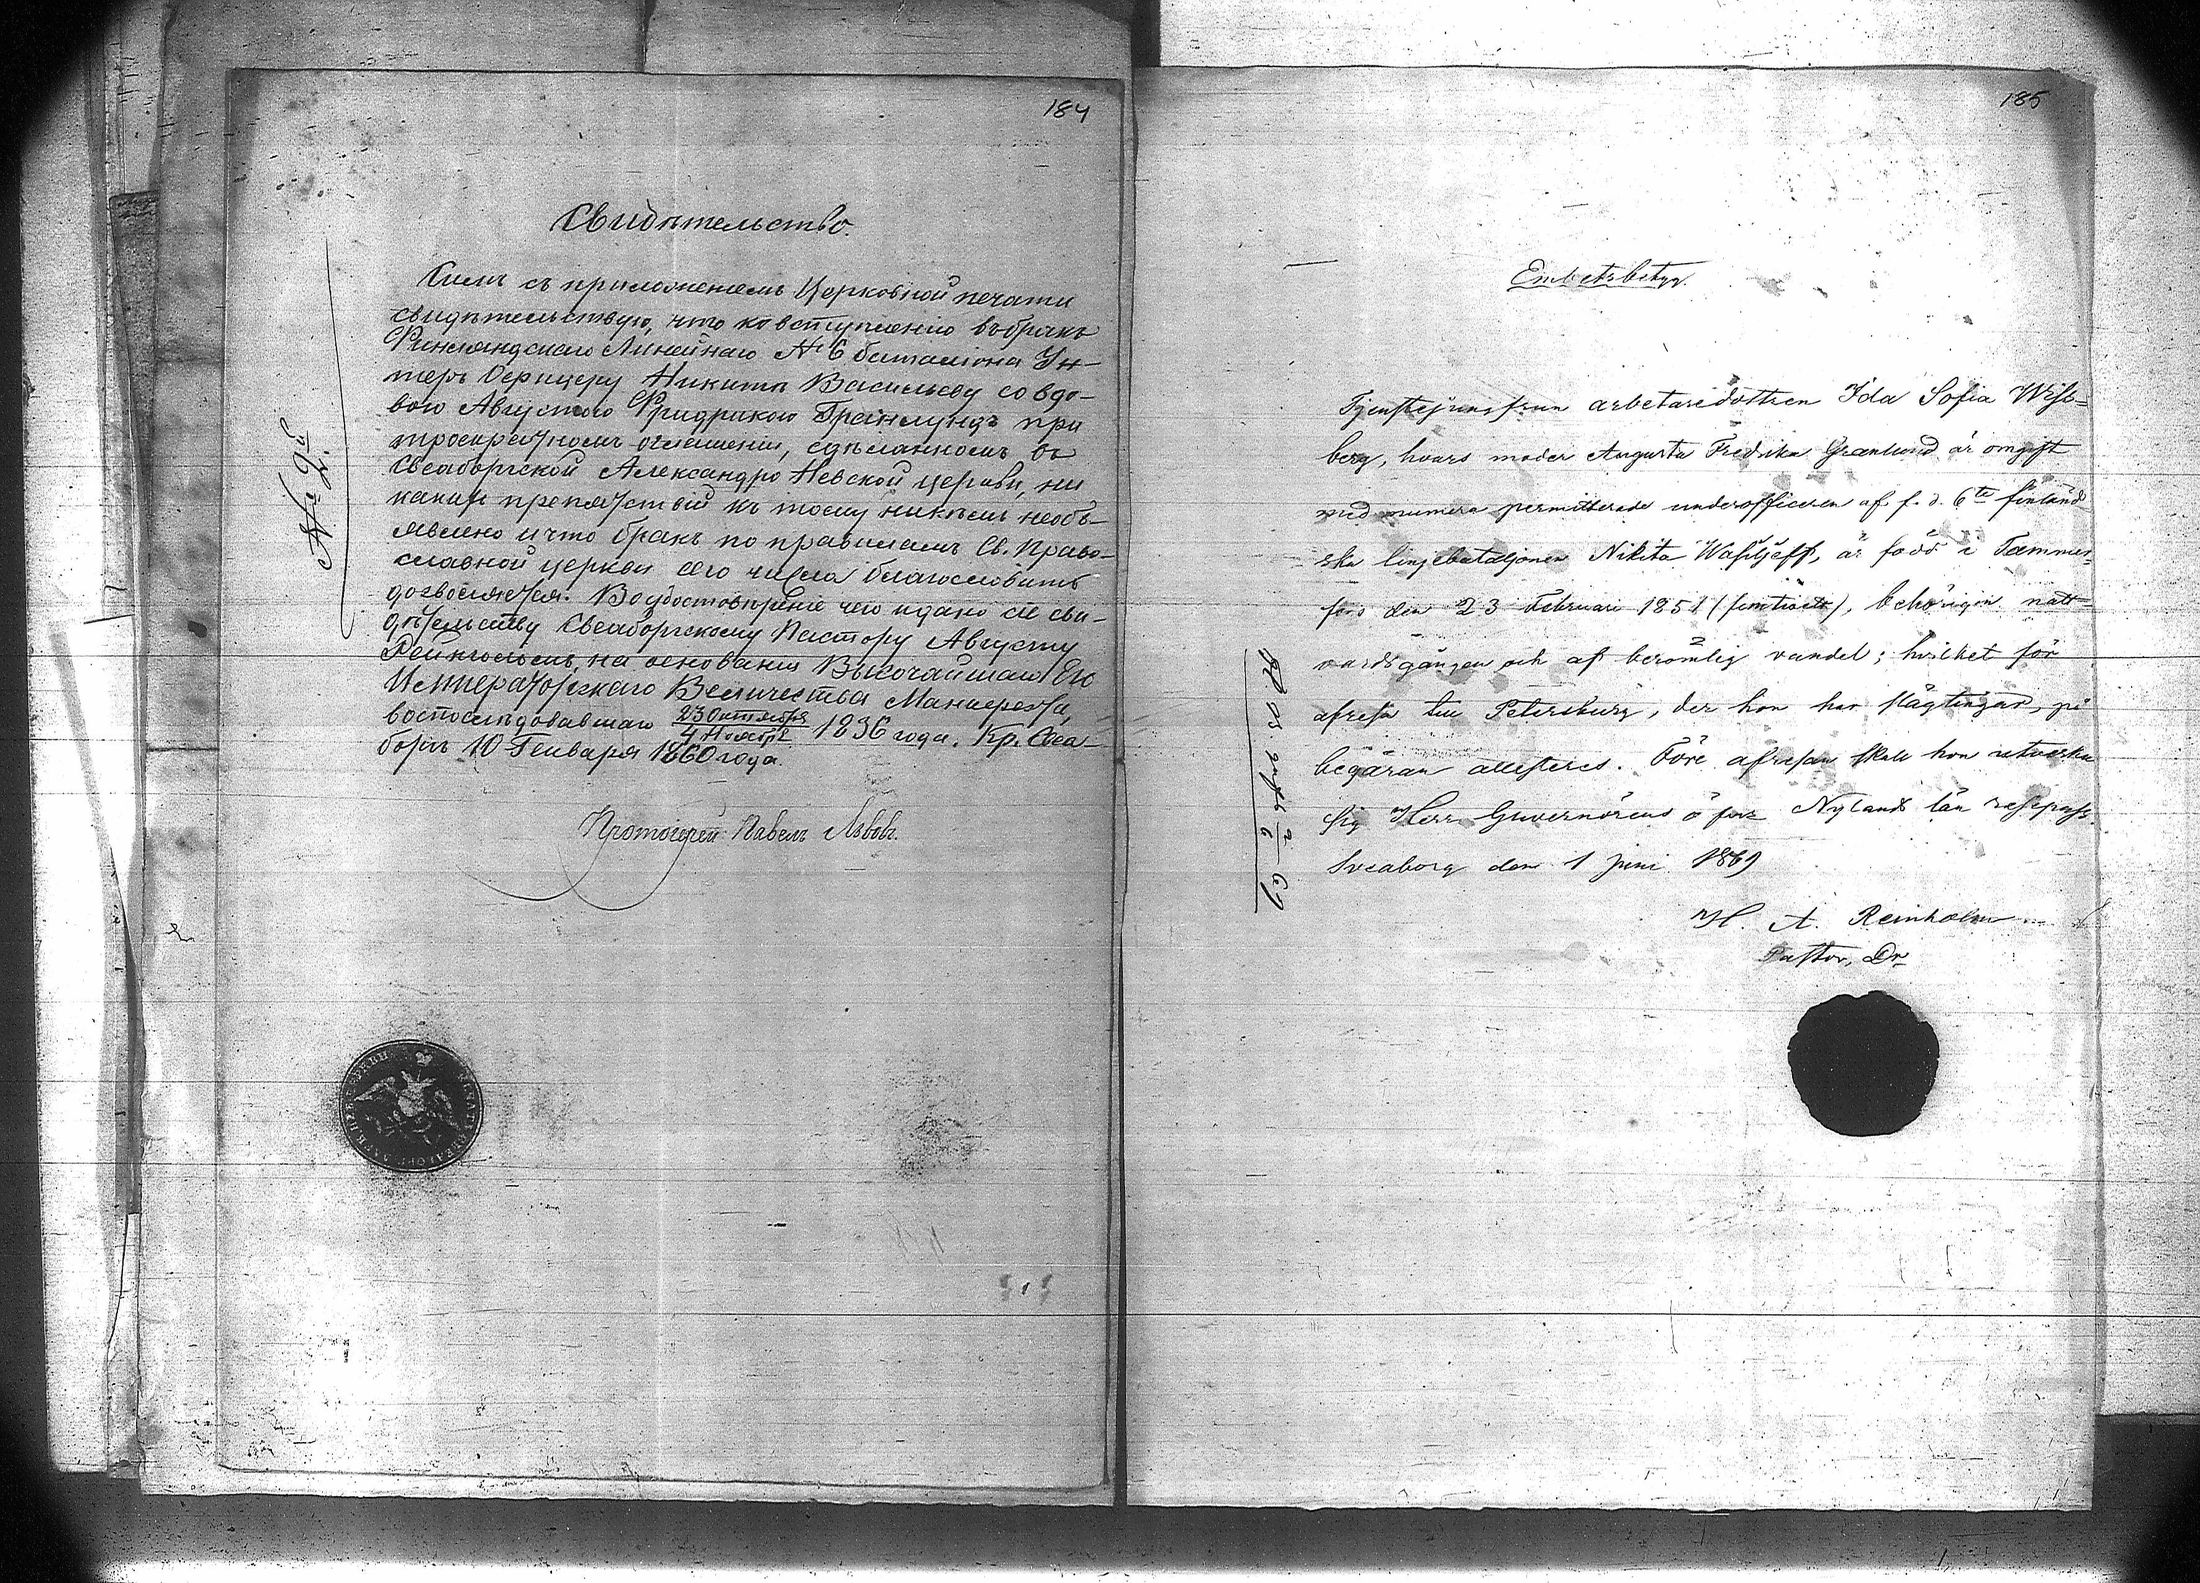 184
Свидѣтельство.
№ 2й.
Симъ съ приложеніемъ Церковной печати
свидѣтельствую, что ко вступленію въ бракъ
Финляндскаго Линейнаго № 6 баталіона Ун-
теръ Офицеру Никитѣ Васильеву со вдо-
вою Августою Фридрикою Гранлундъ при
троекратномъ оглашеніи, сдѣланномъ въ
Свеаборгской Александро Невской церкви, ни
какихъ препятствій къ тому никѣмъ необъ-
явлено и что бракъ по правиламъ Св. Право-
славной церкви сего числа благословить
дозволяется. Во удостовѣреніе чего и дано сіе сви-
дѣтельство Свеаборгскому Пастору Августу
Рейнгольмъ, на основаніи Высочайшаго Его
Императорскаго Величества Манифеста,
воспослѣдовавшаго 23 Октября/4 Ноября 1836 года. Кр. Свеа-
боргъ 10 Генваря 1860 года.
Протоіерей Павелъ Львовъ.
185
Embetsbetyg.
Tjenstejungfrun arbetaredottren Ida Sofia Wiss-
berg, hvars moder Augusta Fredrika Granlund är omgift
med numera permitterade underofficeren af f. d. 6te finländ-
ska linjebataljonen Nikita Wasiljeff, är född i Tammer-
fors den 23 Februari 1851 (femtioett), behörigen natt-
vardsgången och af berömlig vandel; hvilket för
afresa till Petersburg, der hon har slägtingar, på
begäran attesteras. Före afresan skall hon utverka
sig Herr Guvernörens öfver Nylands län resepass.
Sveaborg den 1 Juni 1869
H. A. Reinholm
Pastor, Dr